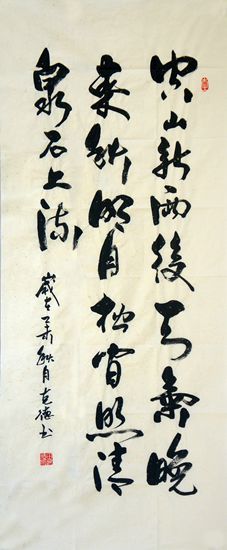 空山新雨後天氣晚
來秋明月松間照清
泉石上流
歲在乙未秋月克德书